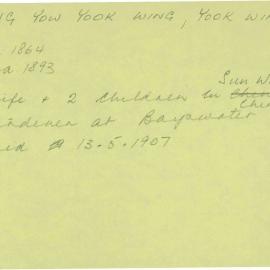 NG YOW YOOK WING, YOOK WIN
. 1864
a 1893
Sun W
ife + 2 children in Chi
rdener at Bayswater
id 13.5.1907